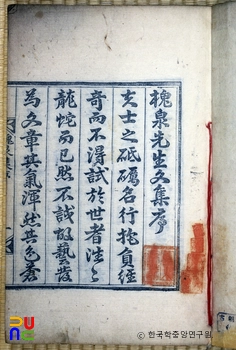 槐泉先生文集序
夫士之砥礪名行抱負經
奇而不得試於世者往〻
龍蛇而已然不試故藝發
為文章其氣渾然其色蒼
© 한국학중앙연구원